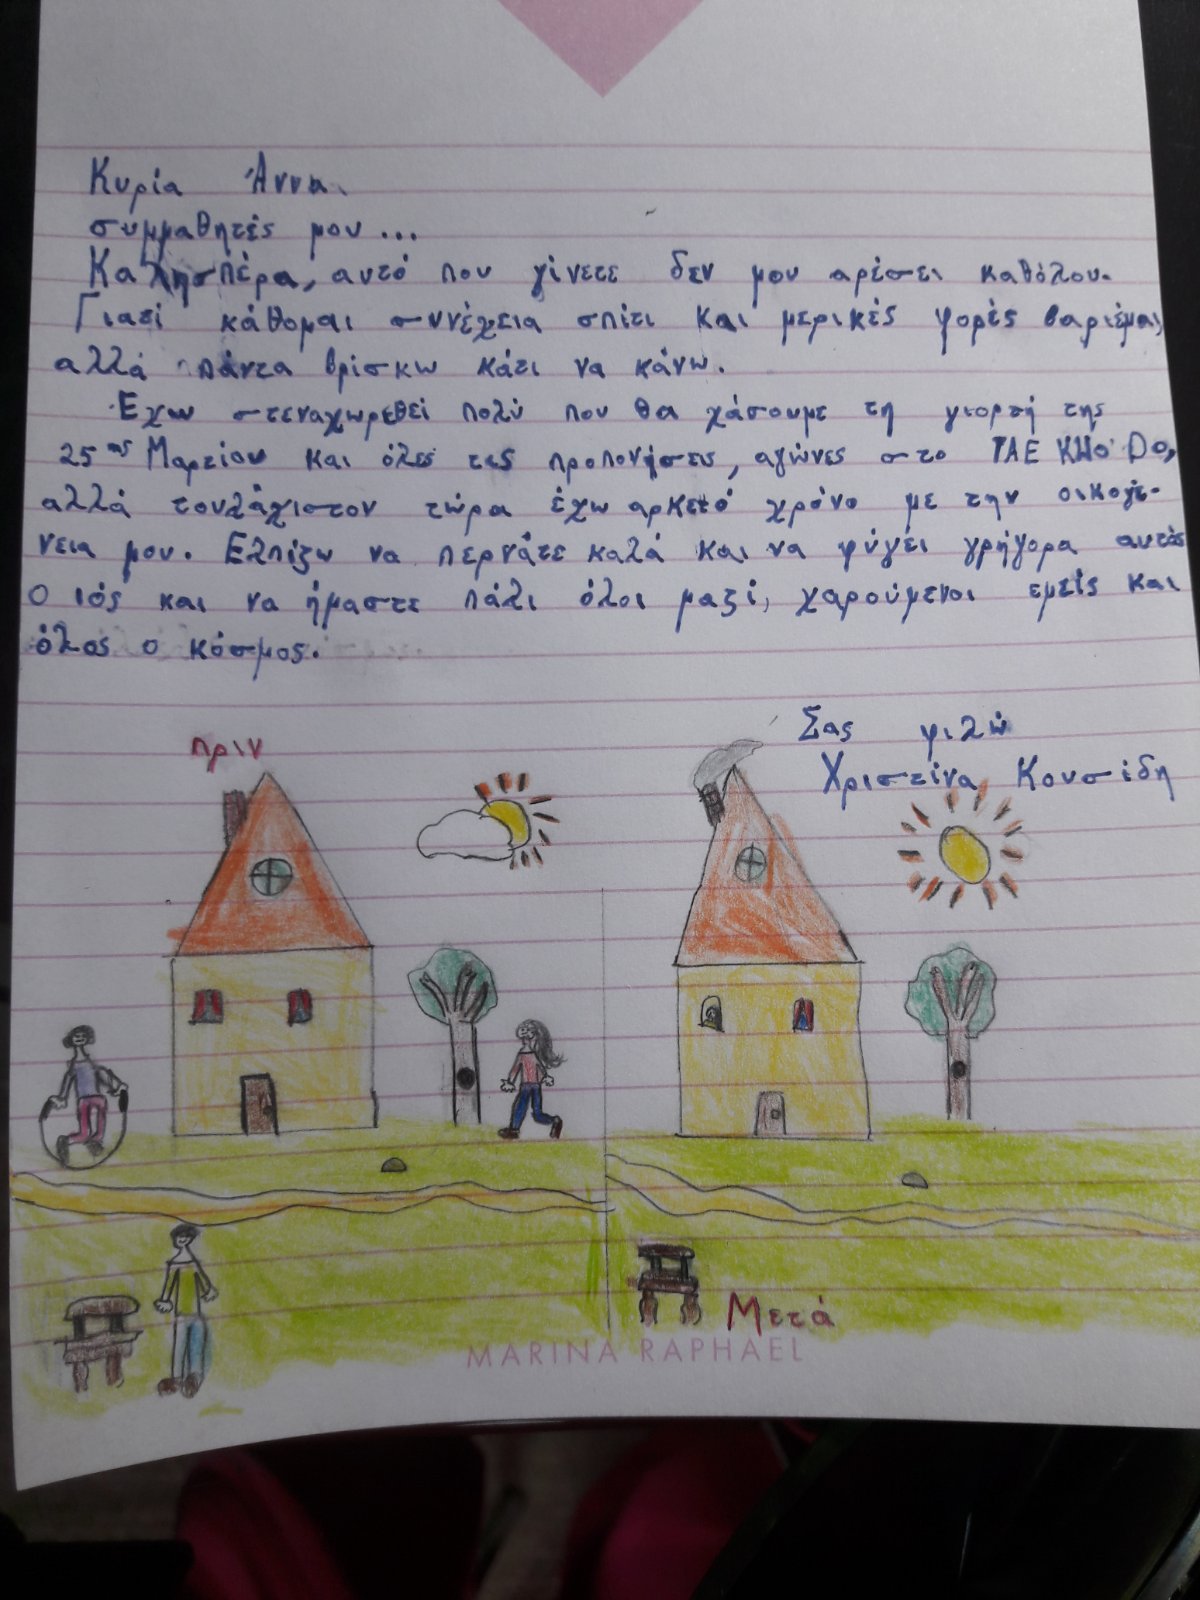 Κυρία Άννα.
συμμαθητές μου...
Καλησπέρα, αυτό που γίνετε δεν μου αρέσει καθόλου.
Γιατί κάθομαι συνέχεια σπίτι και μερικές φορές βαριέμαι,
αλλά πάντα βρίσκω κάτι να κάνω.
Έχω στεναχωρεθεί πολύ που θα χάσουμε τη γιορτή της
25ης Μαρτίου και όλες τις προπονήσεις, αγώνες στο TAE KWO DO,
αλλά τουλάχιστον τώρα έχω αρκετό χρόνο με την οικογέ-
νεια μου. Ελπίζω να περνάτε καλά και να φύγει γρήγορα αυτός
ο ιός και να ήμαστε πάλι όλοι μαζί, χαρούμενοι εμείς και
όλος ο κόσμος.
Σας φιλώ
Χριστίνα Κουσίδη
πριν
Μετά
MARINA RAPHAEL